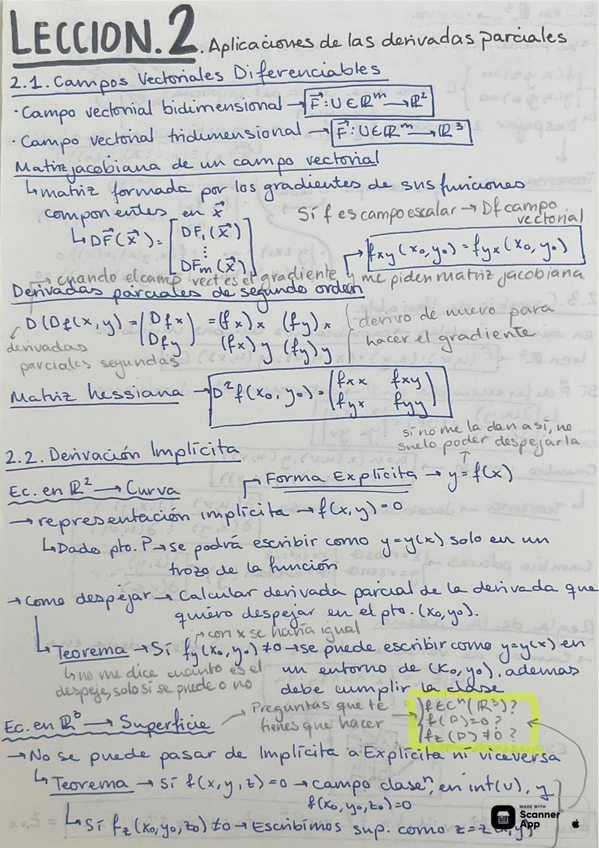 LECCION.2. Aplicaciones de las derivadas parciales
2.1. Campos Vectoriales Diferenciables
· Campo vectorial bidimensional → F⃗: U∈ℝᵐ → ℝ²
· Campo vectorial tridimensional → F⃗: U∈ℝᵐ → ℝ³
Matriz jacobiana de un campo vectorial
↳ matriz formada por los gradientes de sus funciones
componentes en x⃗
Si f es campo escalar → Df campo
vectorial
↳ DF⃗(x⃗) = [DF₁(x⃗) ⋮ DFm(x⃗)]
fxy(x₀,y₀) = fyx(x₀,y₀)
→ cuando el camp vect es el gradiente y me piden matriz jacobiana
Derivadas parciales de segundo orden
D(Df(x,y) = (Dfx Dfy) = (fx)x (fy)x (fx)y (fy)y
derivadas
parciales segundas
derivo de nuevo para
hacer el gradiente
Matriz hessiana → D²f(x₀,y₀) = (fxx fxy fyx fyy)
si no me la dan así, no
suelo poder despejarla
2.2. Derivación Implícita
Ec. en ℝ² → Curva
Forma Explícita → y=f(x)
→ representación implícita → f(x,y)=0
↳ Dado pto. P → se podrá escribir como y=y(x) solo en un
trozo de la función
→ Como despejar → Calcular derivada parcial de la derivada que
quiero despejar en el pto. (x₀,y₀).
con x se haría igual
↳ Teorema → Si fy(x₀,y₀)≠0 → se puede escribir como y=y(x) en
un entorno de (x₀,y₀), además
debe cumplir la clase
↳ no me dice cuánto es el
despeje, solo si se puede o no
Ec. en ℝ³ → Superficie
→ Preguntas que te
tienes que hacer
f∈Cⁿ(ℝ³)?
f(P)=0?
fz(P)≠0?
→ No se puede pasar de Implícita a Explícita ni viceversa
↳ Teorema → Si f(x,y,z)=0 → campo claseⁿ, en int(U), y
f(x₀,y₀,z₀)=0
↳ Si fz(x₀,y₀,z₀)≠0 → Escribimos sup. como z=z(x,y)
MADE WITH
Scanner
App